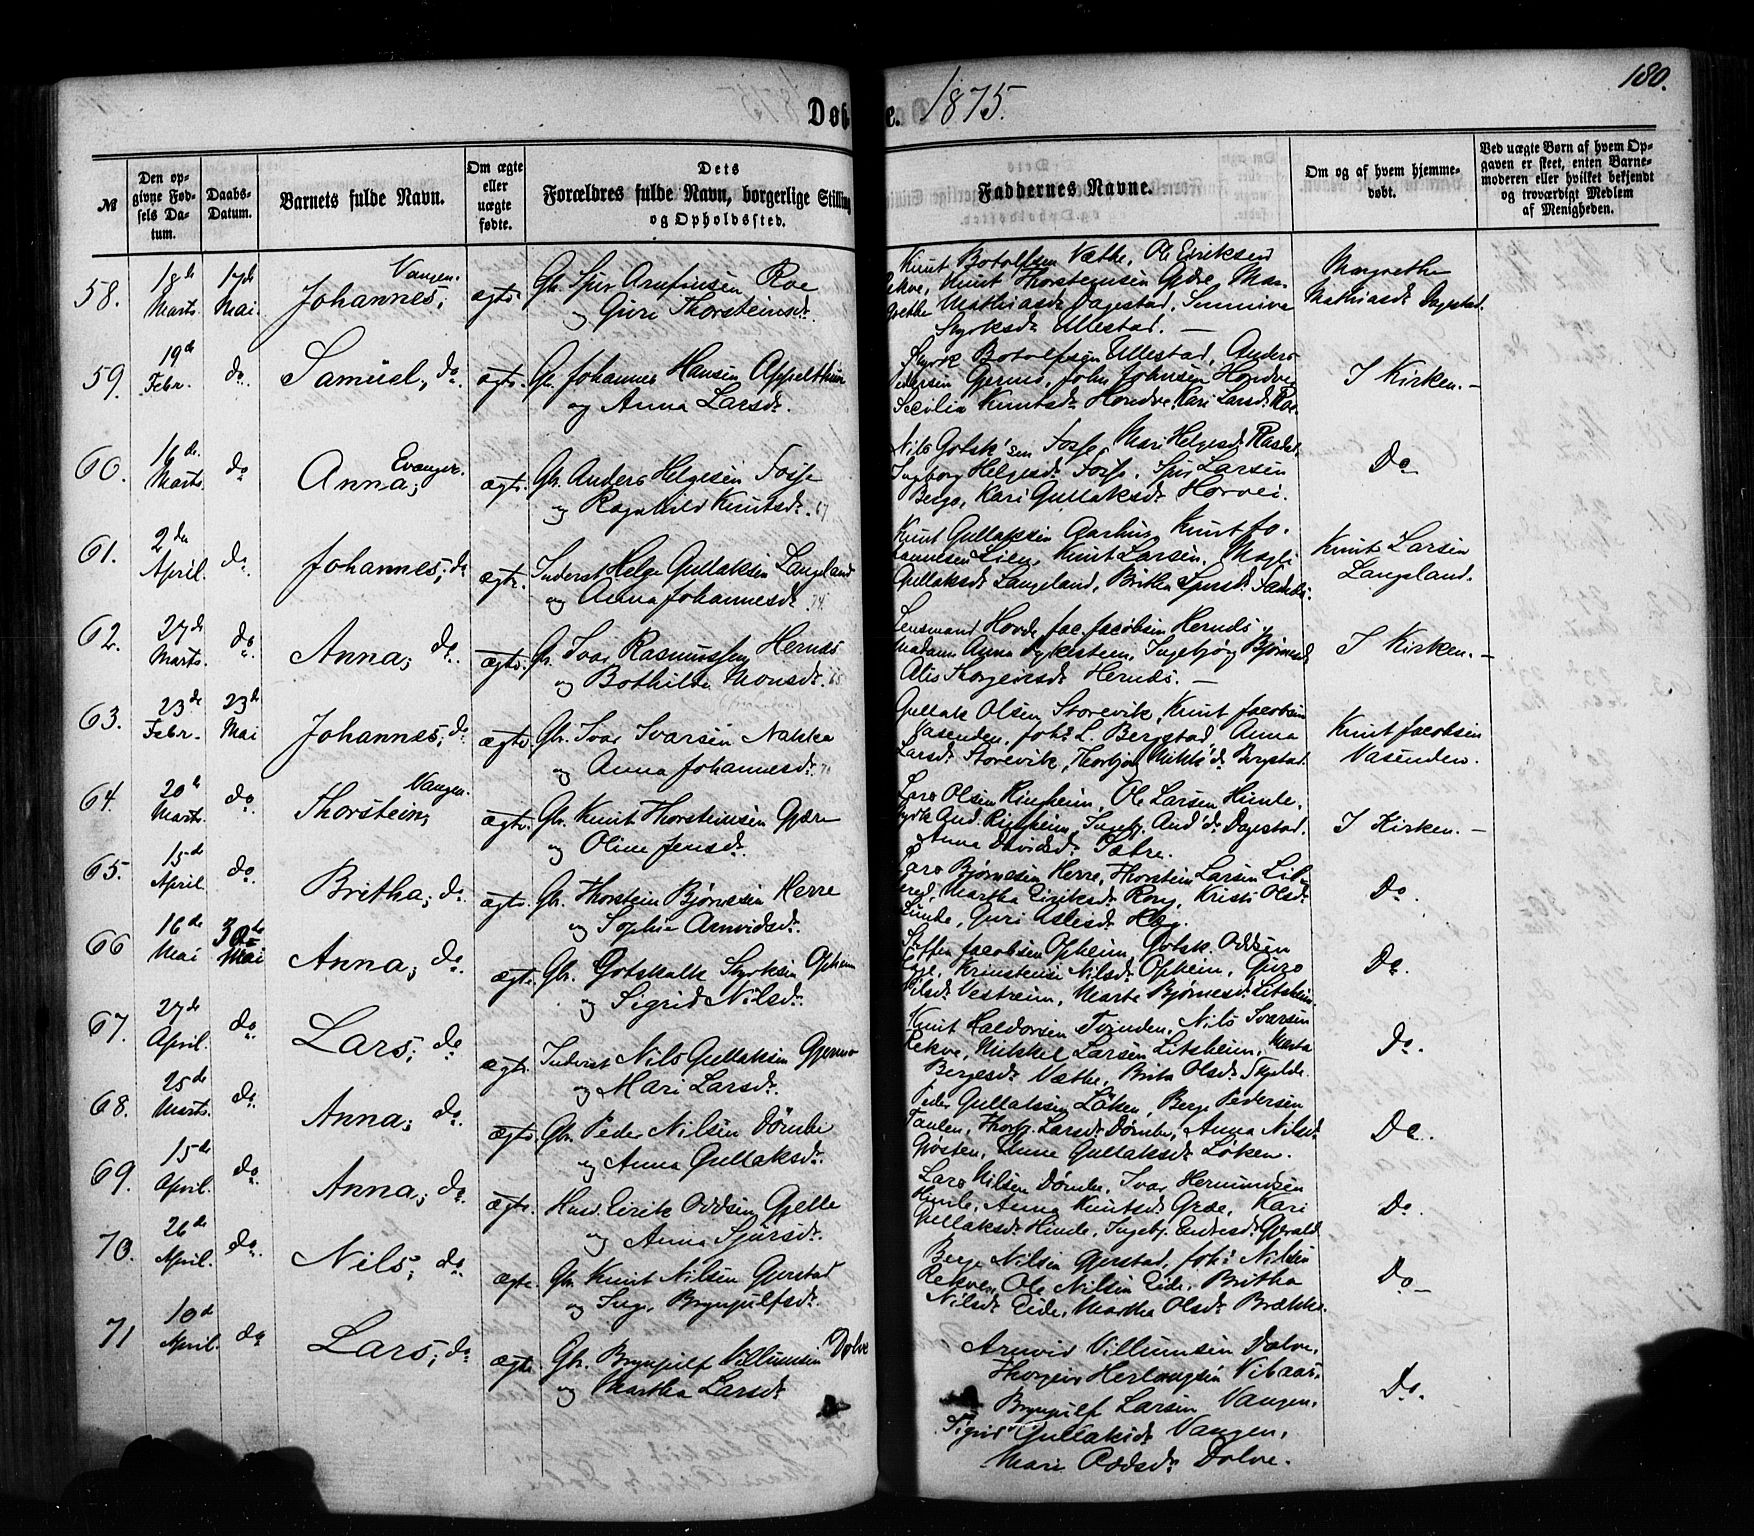 Døb
e. 1875.
180.
№
Den opgivne Fødsels Datum.
Daabs-Datum.
Barnets fulde Navn.
Om ægte eller uægte fødte.
Dets Forældres fulde Navn, borgerlige Stilling og Opholdssted.
Faddernes Navne.
Om og af hvem hjemmedøbt.
Ved uægte Børn af hvem Opgaven er skeet, enten Barnemoderen eller hvilket bekjendt og troværdigt Medlem af Menigheden.
58. 18de Marts. 17de Mai. Vangen. Johannes; ægte. Gbr. Sjur Arnfinsen Roe
og Guri Thorsteinsdr.
Knut Botolfsen Væthe, Ole Eriksen
Rekve, Knut Thorsteinsen Gjære, Mar-
grethe Mathiasdr Dagestad, Sunniva
Styrksdr Ullestad. —
Margrethe
Mathiasdr Dagestad.
59. 19de Febr. do. Samuel, do. ægte. Gbr. Johannes Hansen Appelthun
og Anna Larsdr.
Styrk Botolfsen Ullestad, Anders
Pedersen Gjerme, John Johnsen Hondve
Secilia Knutsdr Hondve, Kari Larsdr Roe
I Kirken. —
60. 16de Marts. do Evanger. Anna; ægte. Gbr. Anders Helgesen Fosse
og Ragnhild Knutsdr.
Nils Gotsk'sen Fosse, Mari Helgesdr
Ingeborg Helgesdr Fosse, Sjur Larsen
Berge, Kari Gullaksdr Horvei.
Do
61. 2den April. do. Johannes; do ægte. Inderst Helge Gullaksen Langeland
og Anna Johannesdr.
Knut Gullaksen Aarhus, Knut Jo-
hannesen Lien, Knut Larsen,
Gullaksdr Langeland, Britha Sjursdr
Knut Larsen
Langeland.
62. 27de Marts. do. Anna; do. ægte. Gbr. Ivar Rasmussen Hernds
og Bothilda Monsdr.
Lensmand Horde, Jac. Jacobsen Hernds
Madam Anna, Ingebjør Bjørnsdr
Atis Thorgeirsdr Hernds. —
I Kirken. —
63. 23de Febr. 23de Mai Johannes; do ægte Gbr. Ivar Ivarsen Nakka
og Anna Johannesdr.
Gullak Olsen Storevik, Knut Jacobsen
Vasenden, Johs. L. Bergstad, Anna
Larsdr Storevik, Thorbjør Mikls'dr Bergstad
Knut Jacobsen
Vasenden.
64. 20de Marts. do. Vangen. Thorstein; ægte. Gbr. Knut Thorsteinsen Gjære
og Oline Jensdr.
Lars Olsen Ringheim, Ole Larsen Himle,
And. Ringheim, Ingebj. And'dr Dagestad.
Anna Davidsdr Sætre.
I Kirken. —
65. 15de April. do. Bretha; do ægte. Gbr. Thorstein Bjørnsen Herre
og Sophie Arnvidsdr.
Lars Bjørnesen Herre, Thorstein Larsen Lid
Martha Eiriksdr Rong, Kristi Olsdr
Linde, Guri Aslesdr
Do.
66 16de Mai 30te Mai Anna; do. ægte. Gbr. Gotskalk Styrksen Opheim
og Sigrid Nilsdr.
Steffen Jacobsen Opheim, Gotsk. Oddsen
Kristense Nilsdr Opheim, Guro
Nilsdr Vestreim, Marte Bjørnesdr Litsheim.
Do.
67. 27de April. do. Lars; do ægte. Inderst Nils Gullaksen Gjerme
og Mari Larsdr.
Knut Haldorsen Tvinden, Nils Ivarsen
Rekve, Mikkel Larsen Litsheim, Marta
Bergesdr Væthe, Brita Olsdr Skjelde.
Do.
68. 25de Marts. do. Anna; do. ægte. Gbr. Peder Nilsen Dømbe
og Anna Gullaksdr.
Peder Gullaksen Løken, Berge Pedersen
Taulen, Thorbj. Larsdr Dømbe, Anna Nilsdr
Gjøsten, Anne Gullaksdr Løken.
Do.
69. 15de April. do. Anna; do. ægte. Husd. Eirik Oddsen Gjelle
og Anna Sjursdr.
Lars Nilsen Dømbe, Ivar Hermundsen
Himle, Anna Knutsdr Græe, Kari
Gullaksdr Himle, Ingebj. Endresdr Gjerald
Do.
70. 26de April. do. Nils; do. ægte. Gbr. Knut Nilsen Gjerstad
og Inge. Brynjulfsdr.
Berge Nilsen Gjerstad, Johs Nilsen
Rekve, Ole Nilsen Eide, Britha
Nilsdr Eide, Martha Olsdr Brække.
Do —
71 10de April. do Lars; do ægte. Gbr. Brynjulf Villumsen Dolve
og Martha Larsdr
Arnvid Villumsen Dolve,
Thorgeir Herlaugsen Vibaas,
Brynjulf Larsen Vangen,
Sigrid Gullaksdr Vangen,
Mari Oddsdr Dolve.
Do.